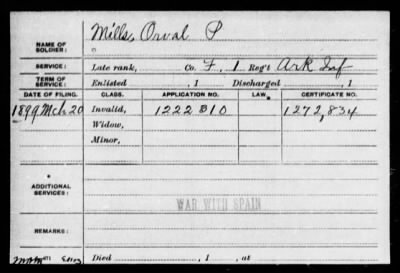 NAME OF SOLDIER: Miller, Orval P
SERVICE: Late rank, Co. F, 1 Reg't Ark Inf
TERM OF SERVICE: Enlisted , 1 Discharged , 1
DATE OF FILING. CLASS. APPLICATION NO. LAW. CERTIFICATE NO.
1899 Mch 20 Invalid, 1222 810 1272,834
Widow,
Minor,
ADDITIONAL SERVICES:
WAR WITH SPAIN
REMARKS:
Died , 1 , at